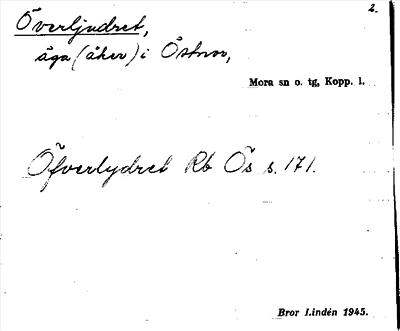 2.
Överljudret,
äga (åker) i Östnor,
Mora sn o. tg, Kopp. l.
Öfverlydret Rb Ös s. 171.
Bror Lindén 1945.